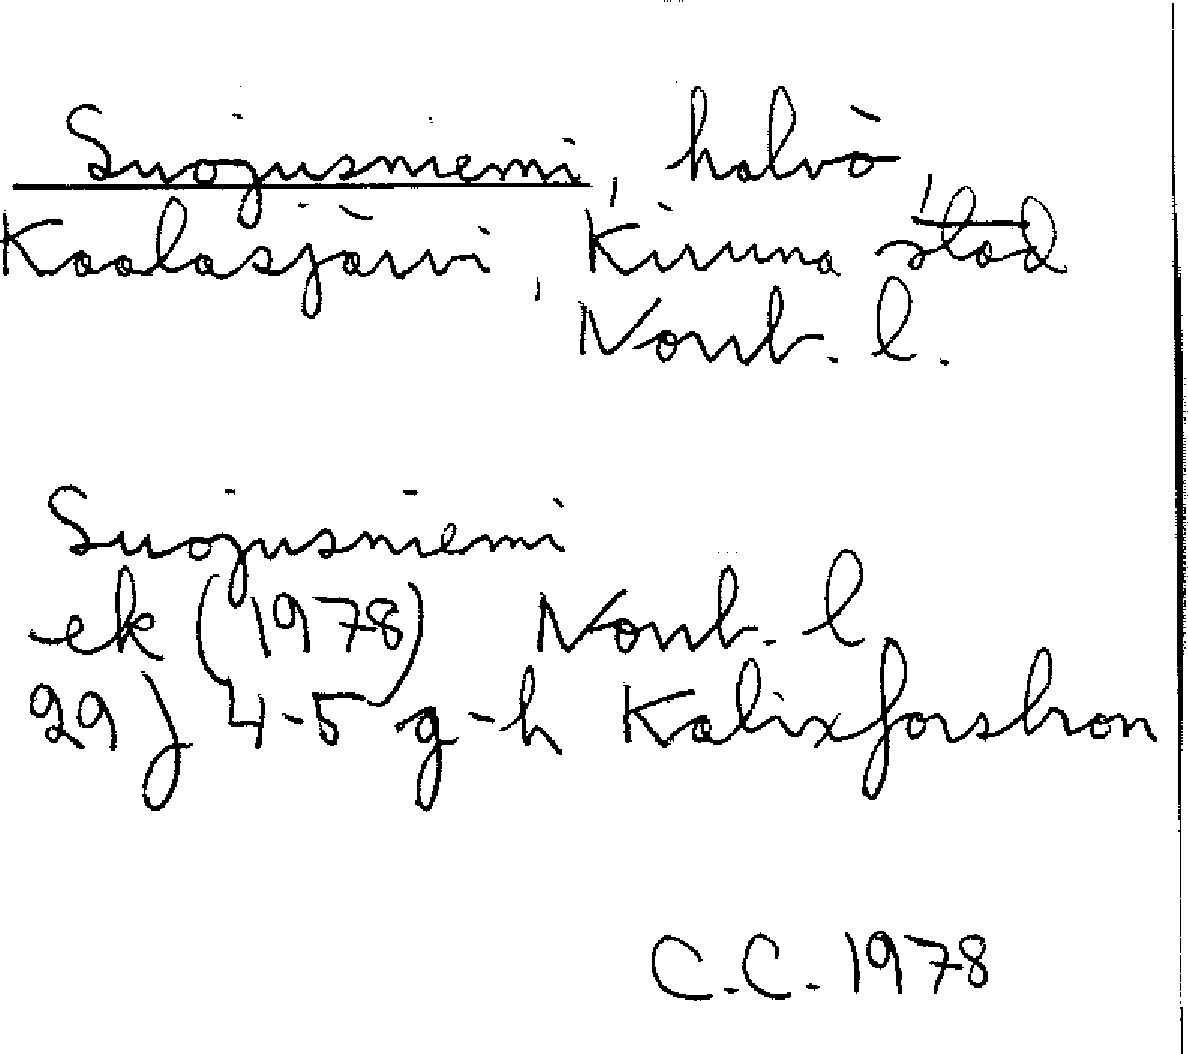 Suojusniemi, halvö,
Kaalasjärvi, Kiruna stad
Norrb. l.
Suojusniemi
ek (1978) Norrb. l
29 j 4-5 g-h Kalixforsbron
C.C. 1978